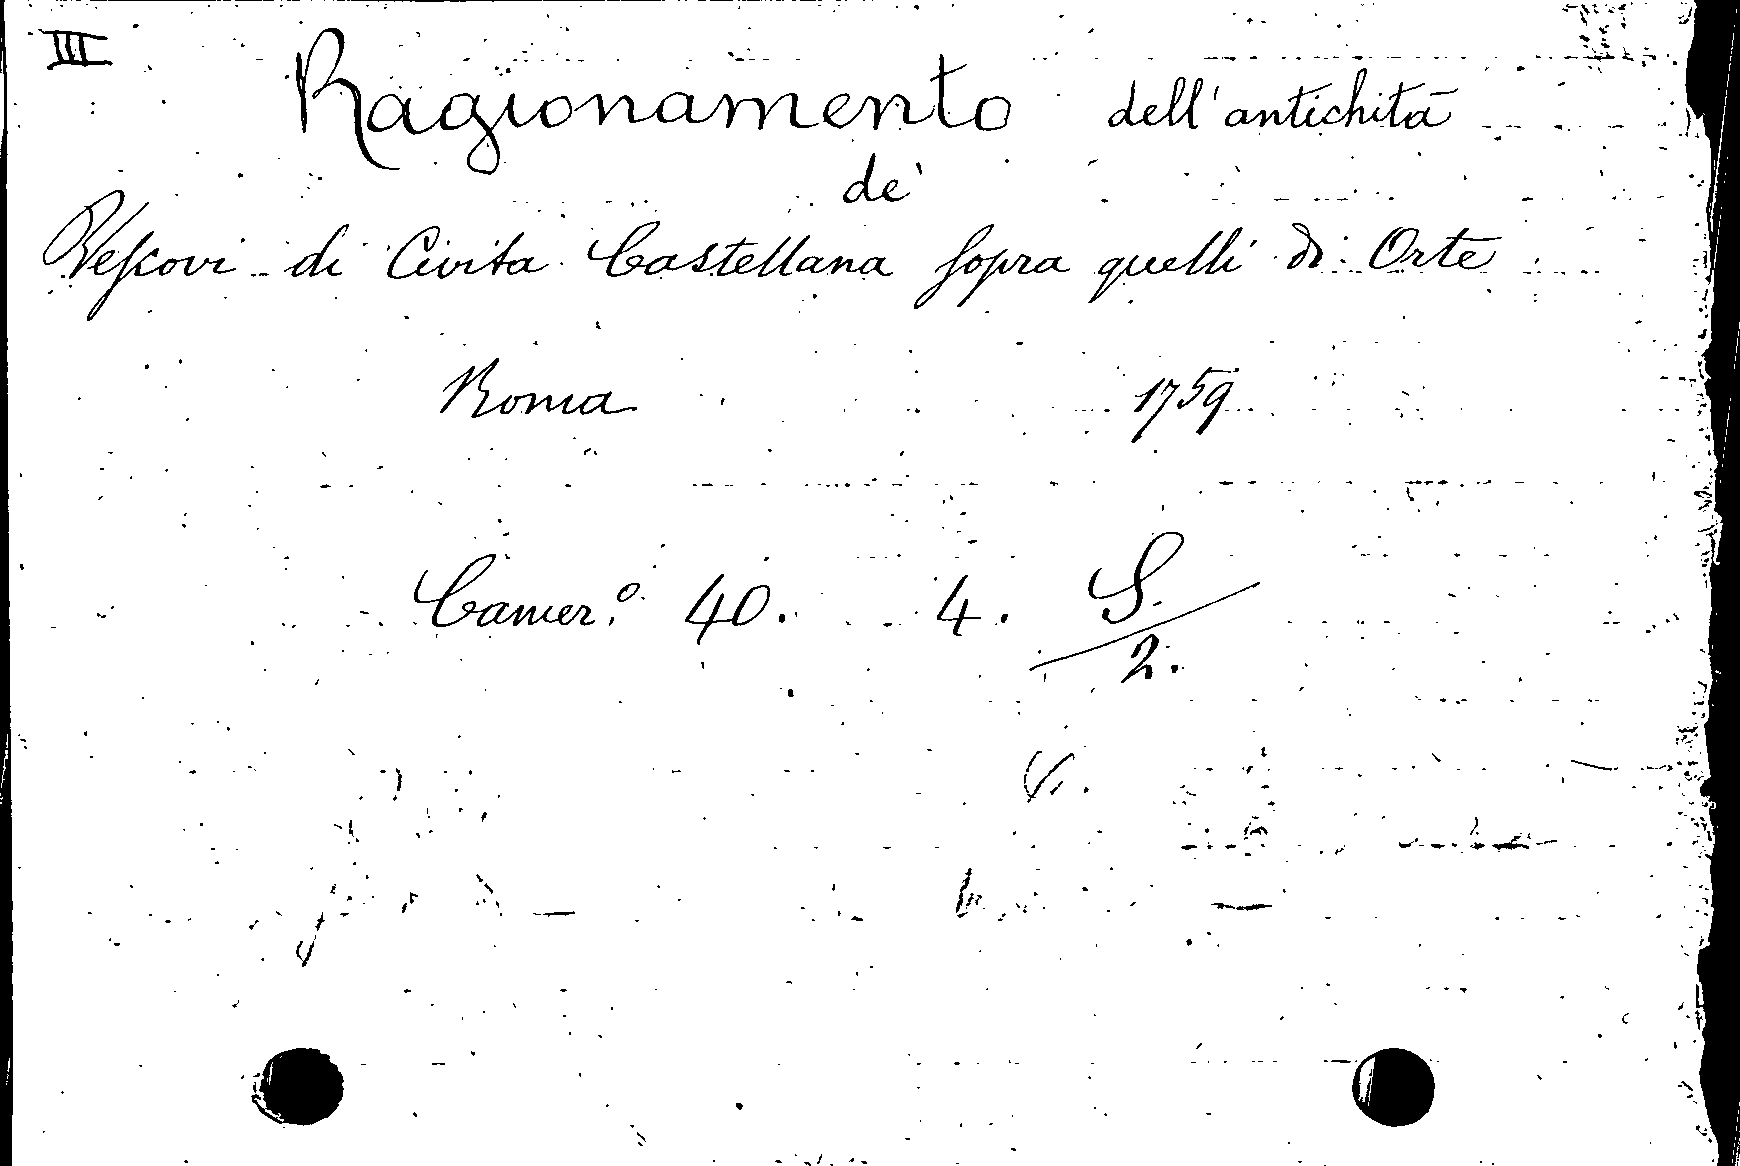 III
Ragionamento dell'antichità
de'
Vescovi di Civita Castellana sopra quelli di Orte
Roma 1759
Camer.º 40. 4. S.
2.